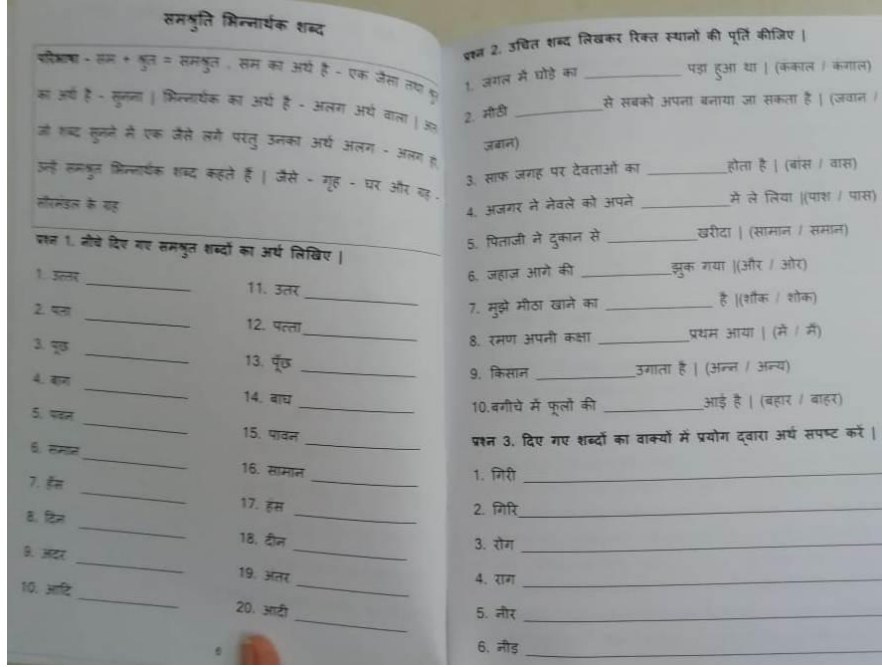 समश्रुति भिन्नार्थक शब्द
परिभाषा - सम + श्रुत = समश्रुत , सम का अर्थ है - एक जैसा तथा
का अर्थ है - सुनना | भिन्नार्थक का अर्थ है - अलग अर्थ वाला |
जो शब्द सुनने में एक जैसे लगे परंतु उनका अर्थ अलग - अलग हो,
उन्हें समश्रुत भिन्नार्थक शब्द कहते हैं | जैसे - गृह - घर और ग्रह -
सौरमंडल के ग्रह
प्रश्न 1. नीचे दिए गए समश्रुत शब्दों का अर्थ लिखिए |
1. उत्तर ____________
2. पता ____________
3. पूछ ____________
4. बाग ____________
5. पवन ____________
6. समान ____________
7. हँस ____________
8. दिन ____________
9. अंदर ____________
10. आदि ____________
11. उतर ____________
12. पत्ता ____________
13. पूँछ ____________
14. बाघ ____________
15. पावन ____________
16. सामान ____________
17. हंस ____________
18. दीन ____________
19. अंतर ____________
20. आदी ____________
6
प्रश्न 2. उचित शब्द लिखकर रिक्त स्थानों की पूर्ति कीजिए |
1. जंगल में घोड़े का ____________ पड़ा हुआ था | (कंकाल / कंगाल)
2. मीठी ____________ से सबको अपना बनाया जा सकता है | (जवान /
जबान)
3. साफ जगह पर देवताओं का ____________होता है | (बांस / वास)
4. अजगर ने नेवले को अपने ____________में ले लिया |(पाश / पास)
5. पिताजी ने दुकान से ____________खरीदा | (सामान / समान)
6. जहाज़ आगे की ____________झुक गया |(और / ओर)
7. मुझे मीठा खाने का ____________ है |(शौक / शोक)
8. रमण अपनी कक्षा ____________प्रथम आया | (में / मैं)
9. किसान ____________उगाता है | (अन्न / अन्य)
10.बगीचे में फूलों की ____________आई है | (बहार / बाहर)
प्रश्न 3. दिए गए शब्दों का वाक्यों में प्रयोग द्वारा अर्थ सपष्ट करें |
1. गिरी ____________
2. गिरि____________
3. रोग ____________
4. राग ____________
5. नीर ____________
6. नीड़ ____________